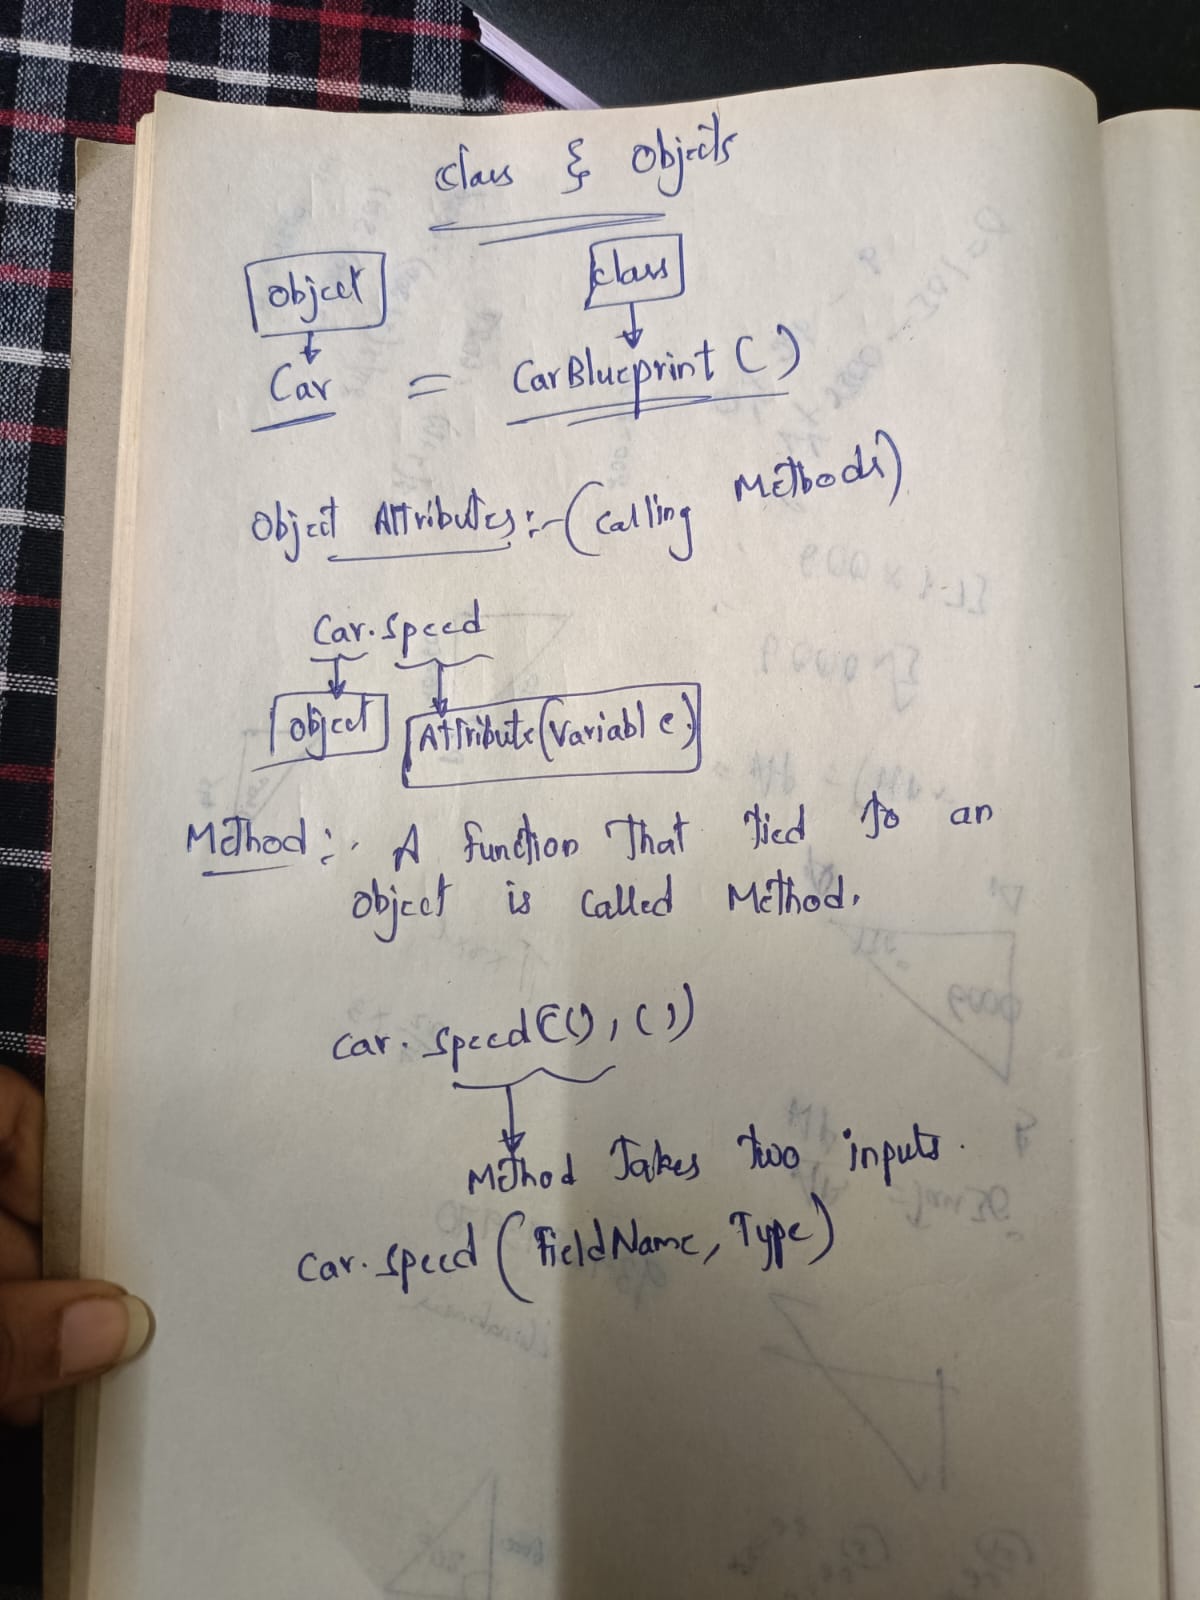 Class & Objects
Object
Class
Car = CarBlueprint ( )
Object Attributes :- (Calling Methods)
Car.Speed
Object
Attribute(Variable)
Method :- A function That tied to an
object is called Method.
Car. Speed(( ), ( ))
Method Takes two inputs.
Car. Speed (FieldName, Type)